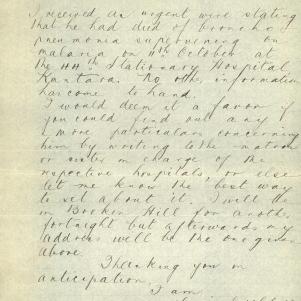 I received an urgent wire stating
that he had died of broncho
pneumonia supervening on
malaria on 11th October at
the 44th Stationary Hospital,
Kantara. No other information
has come to hand.
I would deem it a favor if
you could find out any
more particulars concerning
him by writing to the matron
or sister in charge of the
respective hospitals, or else
let me know the best way
to set about it. I will be
in Broken Hill for another
fortnight but afterwards my
address will be the one given
above.
Thanking you in
anticipation.
I am